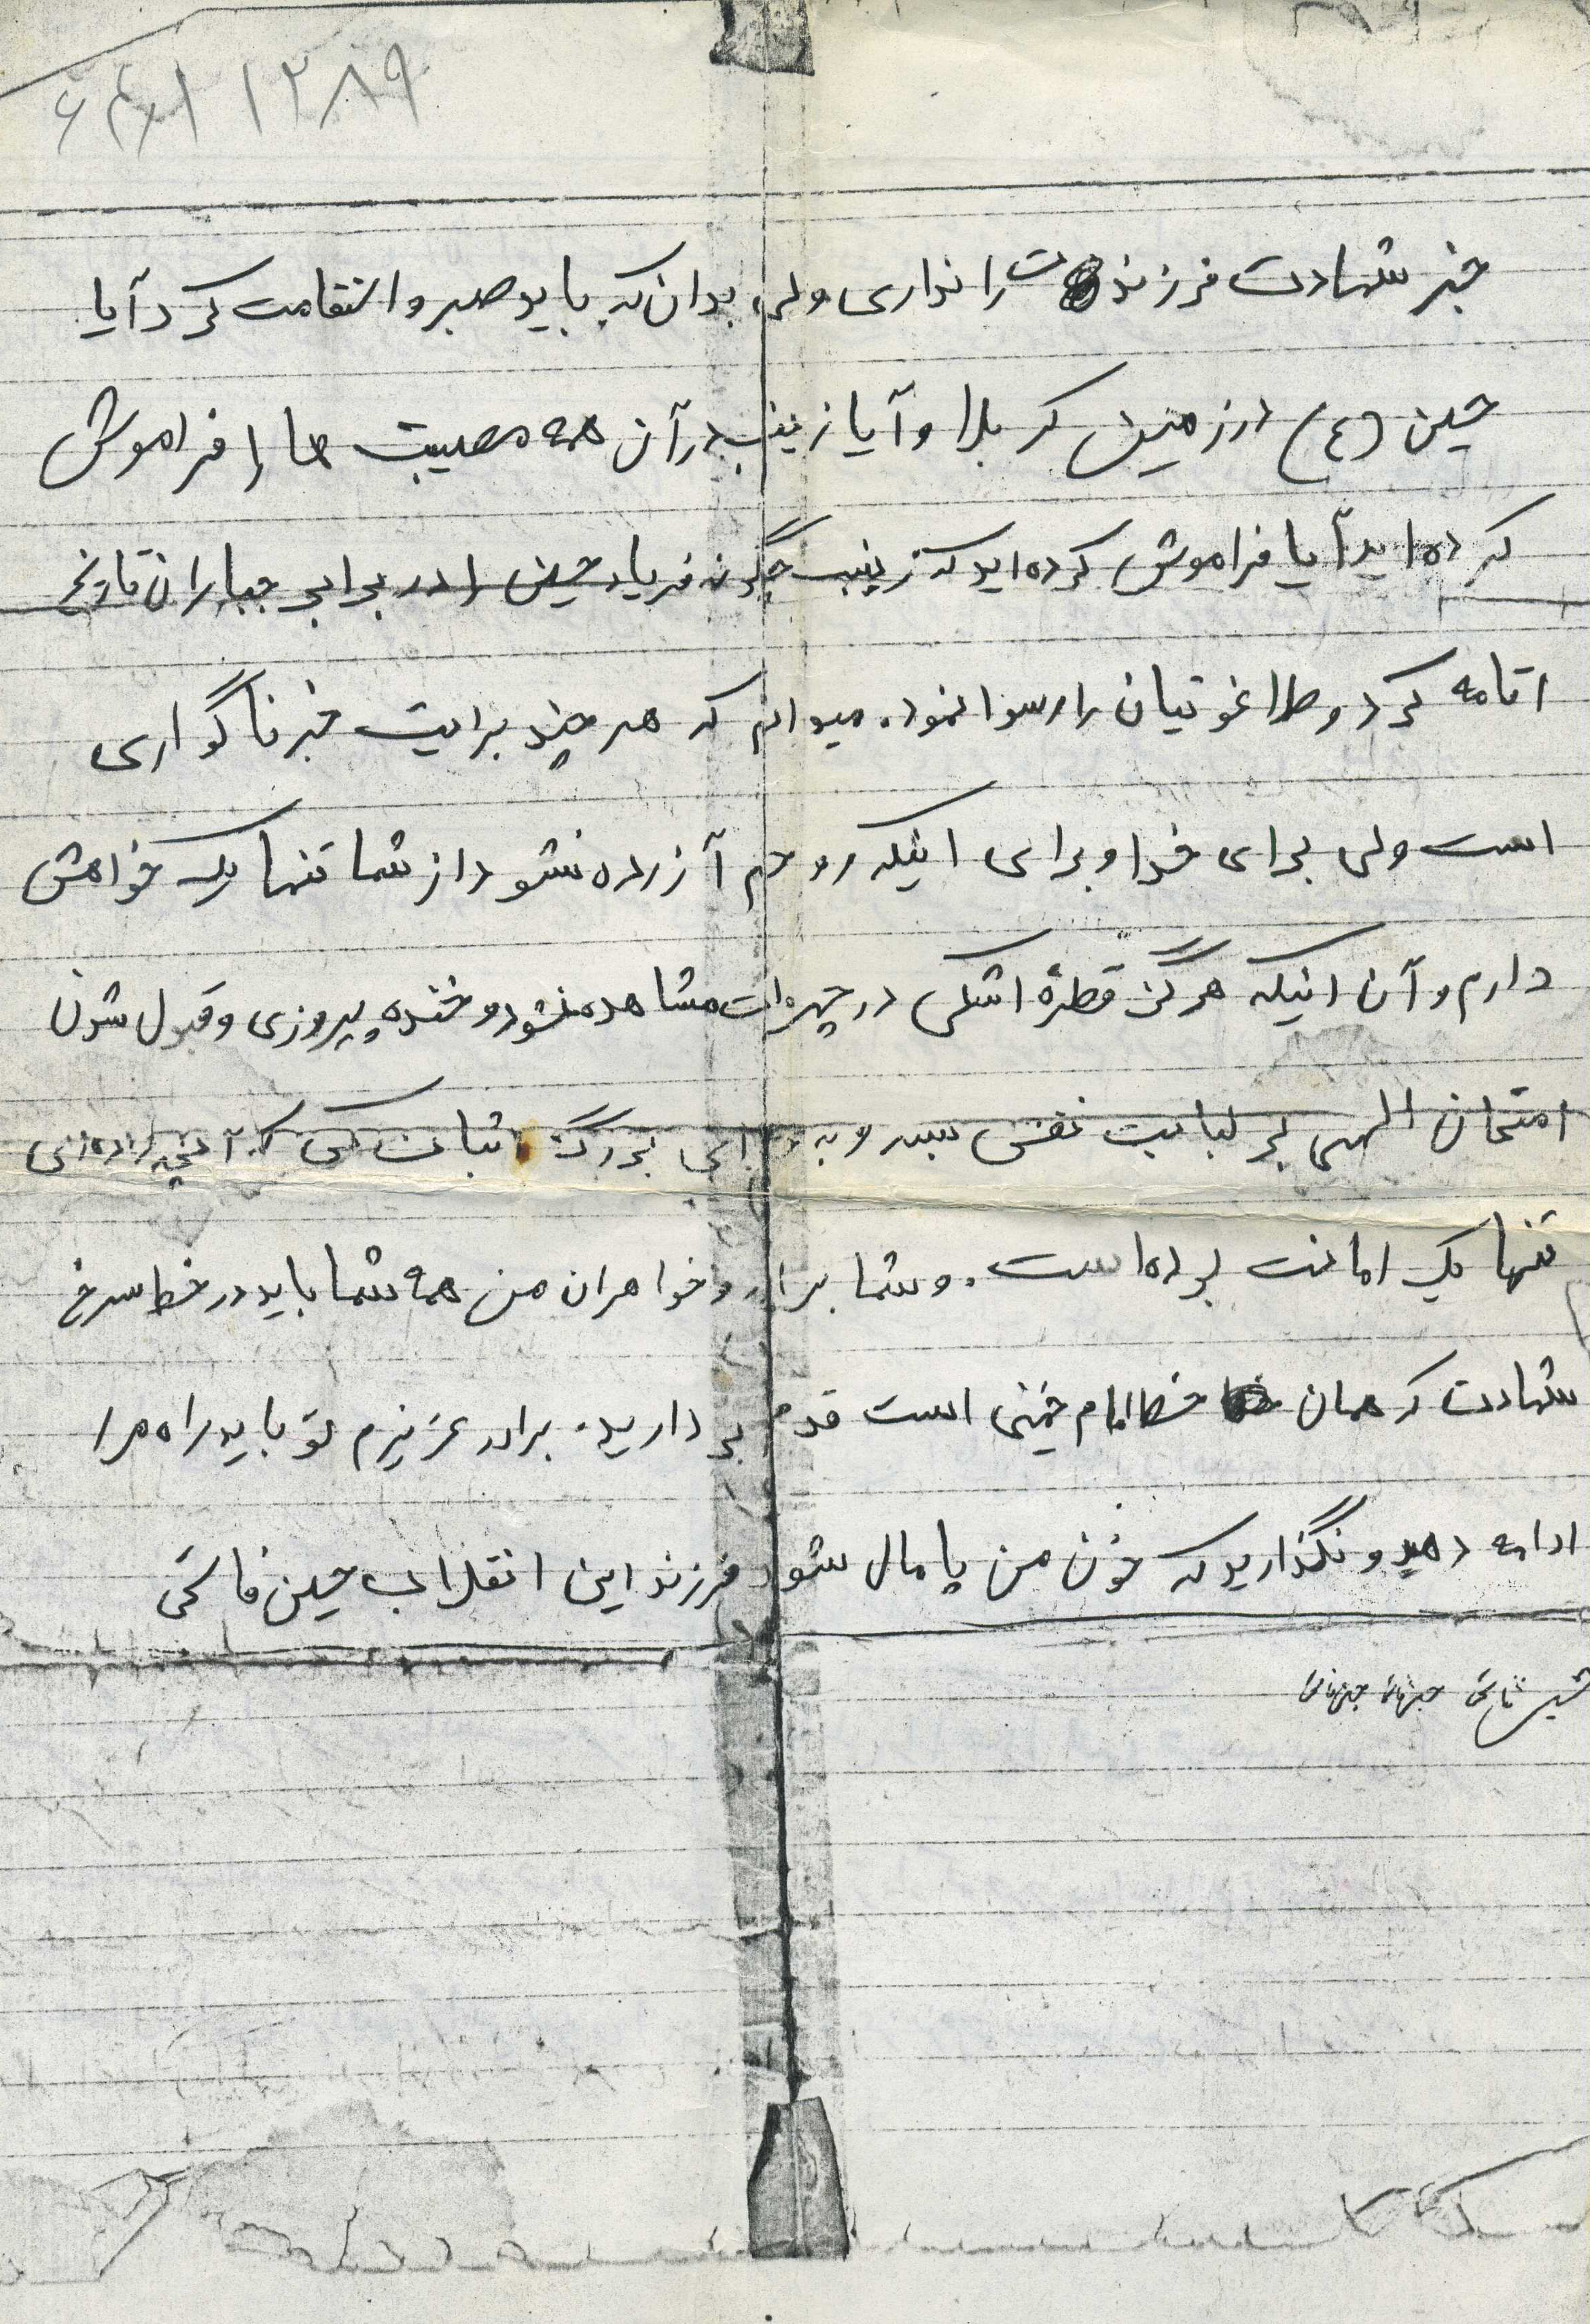 ۱۲۸۹
خبر شهادت فرزندت را نداری ولی بدان که باید صبر و استقامت کرد آیا
حسین (ع) در زمین کربلا و آیا زینب در آن همه مصیبت ها را فراموش
کرده اید آیا فراموش کرده اید که زینب چگونه فریاد حسین را در برابر جباران تاریخ
اقامه کرد و طاغوتیان را رسوا نمود. میدانم که هر چند برایت خبر ناگواری
است ولی برای خدا و برای اینکه روحم آزرده نشود از شما تنها یک خواهش
دارم و آن اینکه هرگز قطرهٔ اشکی در چهره ات مشاهده نشود و خنده پیروزی و قبول شدن
امتحان الهی بر لبانت نقش ببندد و به بزرگ اثبات کنی که آنچه داده ای
تنها یک امانت بوده است. و شما برادر و خواهران من همه شما باید در خط سرخ
شهادت که همان خط امام خمینی است قدم بردارید. برادر عزیزم تو باید راه مرا
ادامه دهید و نگذارید که خون من پامال شود فرزند این انقلاب حسین فاتحی